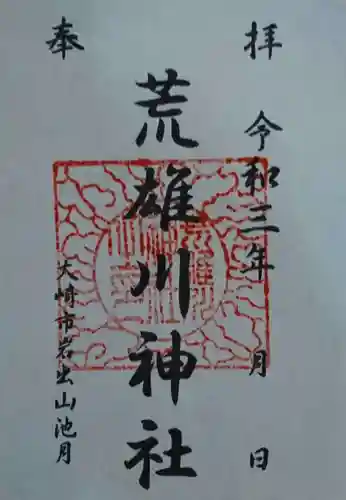 奉拝
令和三年 月 日
荒雄川神社
大崎市岩出山池月